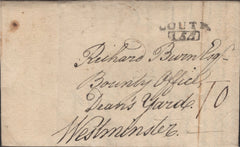 LOUTH
154
Richard Burn Esqr
Bounty Office
Deans Yard
Westminster
10